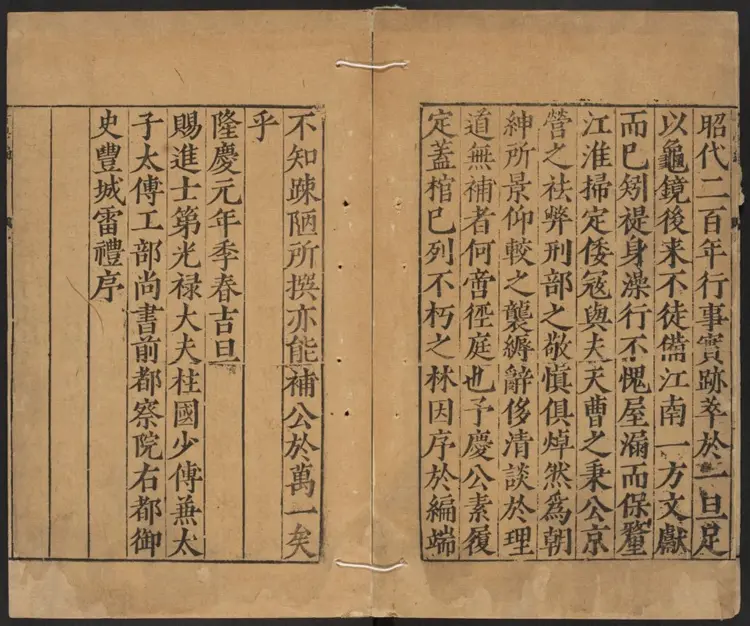 昭代二百年行事實跡萃於一旦足
以龜鏡後来不徒備江南一方文獻
而已矧禔身澡行不愧屋漏而保釐
江淮掃定倭寇與夫天曹之秉公京
營之祛弊刑部之敬慎俱焯然爲朝
紳所景仰較之襲縟辭侈清談於理
道無補者何啻徑庭也予慶公素履
定蓋棺已列不朽之林因序於編端
不知疎陋所撰亦能補公於萬一矣
乎
隆慶元年季春吉旦
賜進士第光禄大夫柱國少傅兼太
子太傅工部尚書前都察院右都御
史豐城雷禮序